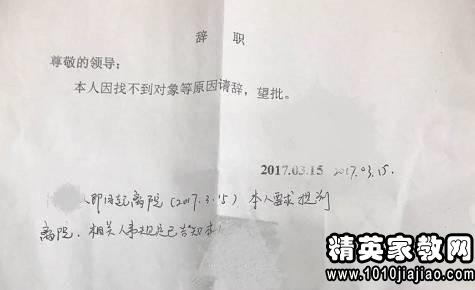 辞 职
尊敬的领导;
本人因找不到对象等原因请辞，望批。
2017.03.15 2017.03.15.
即日起离院(2017.3.15) 本人要求提前
离院，相关人事规定已告知本人
精英家教网
www.1010jiajiao.com